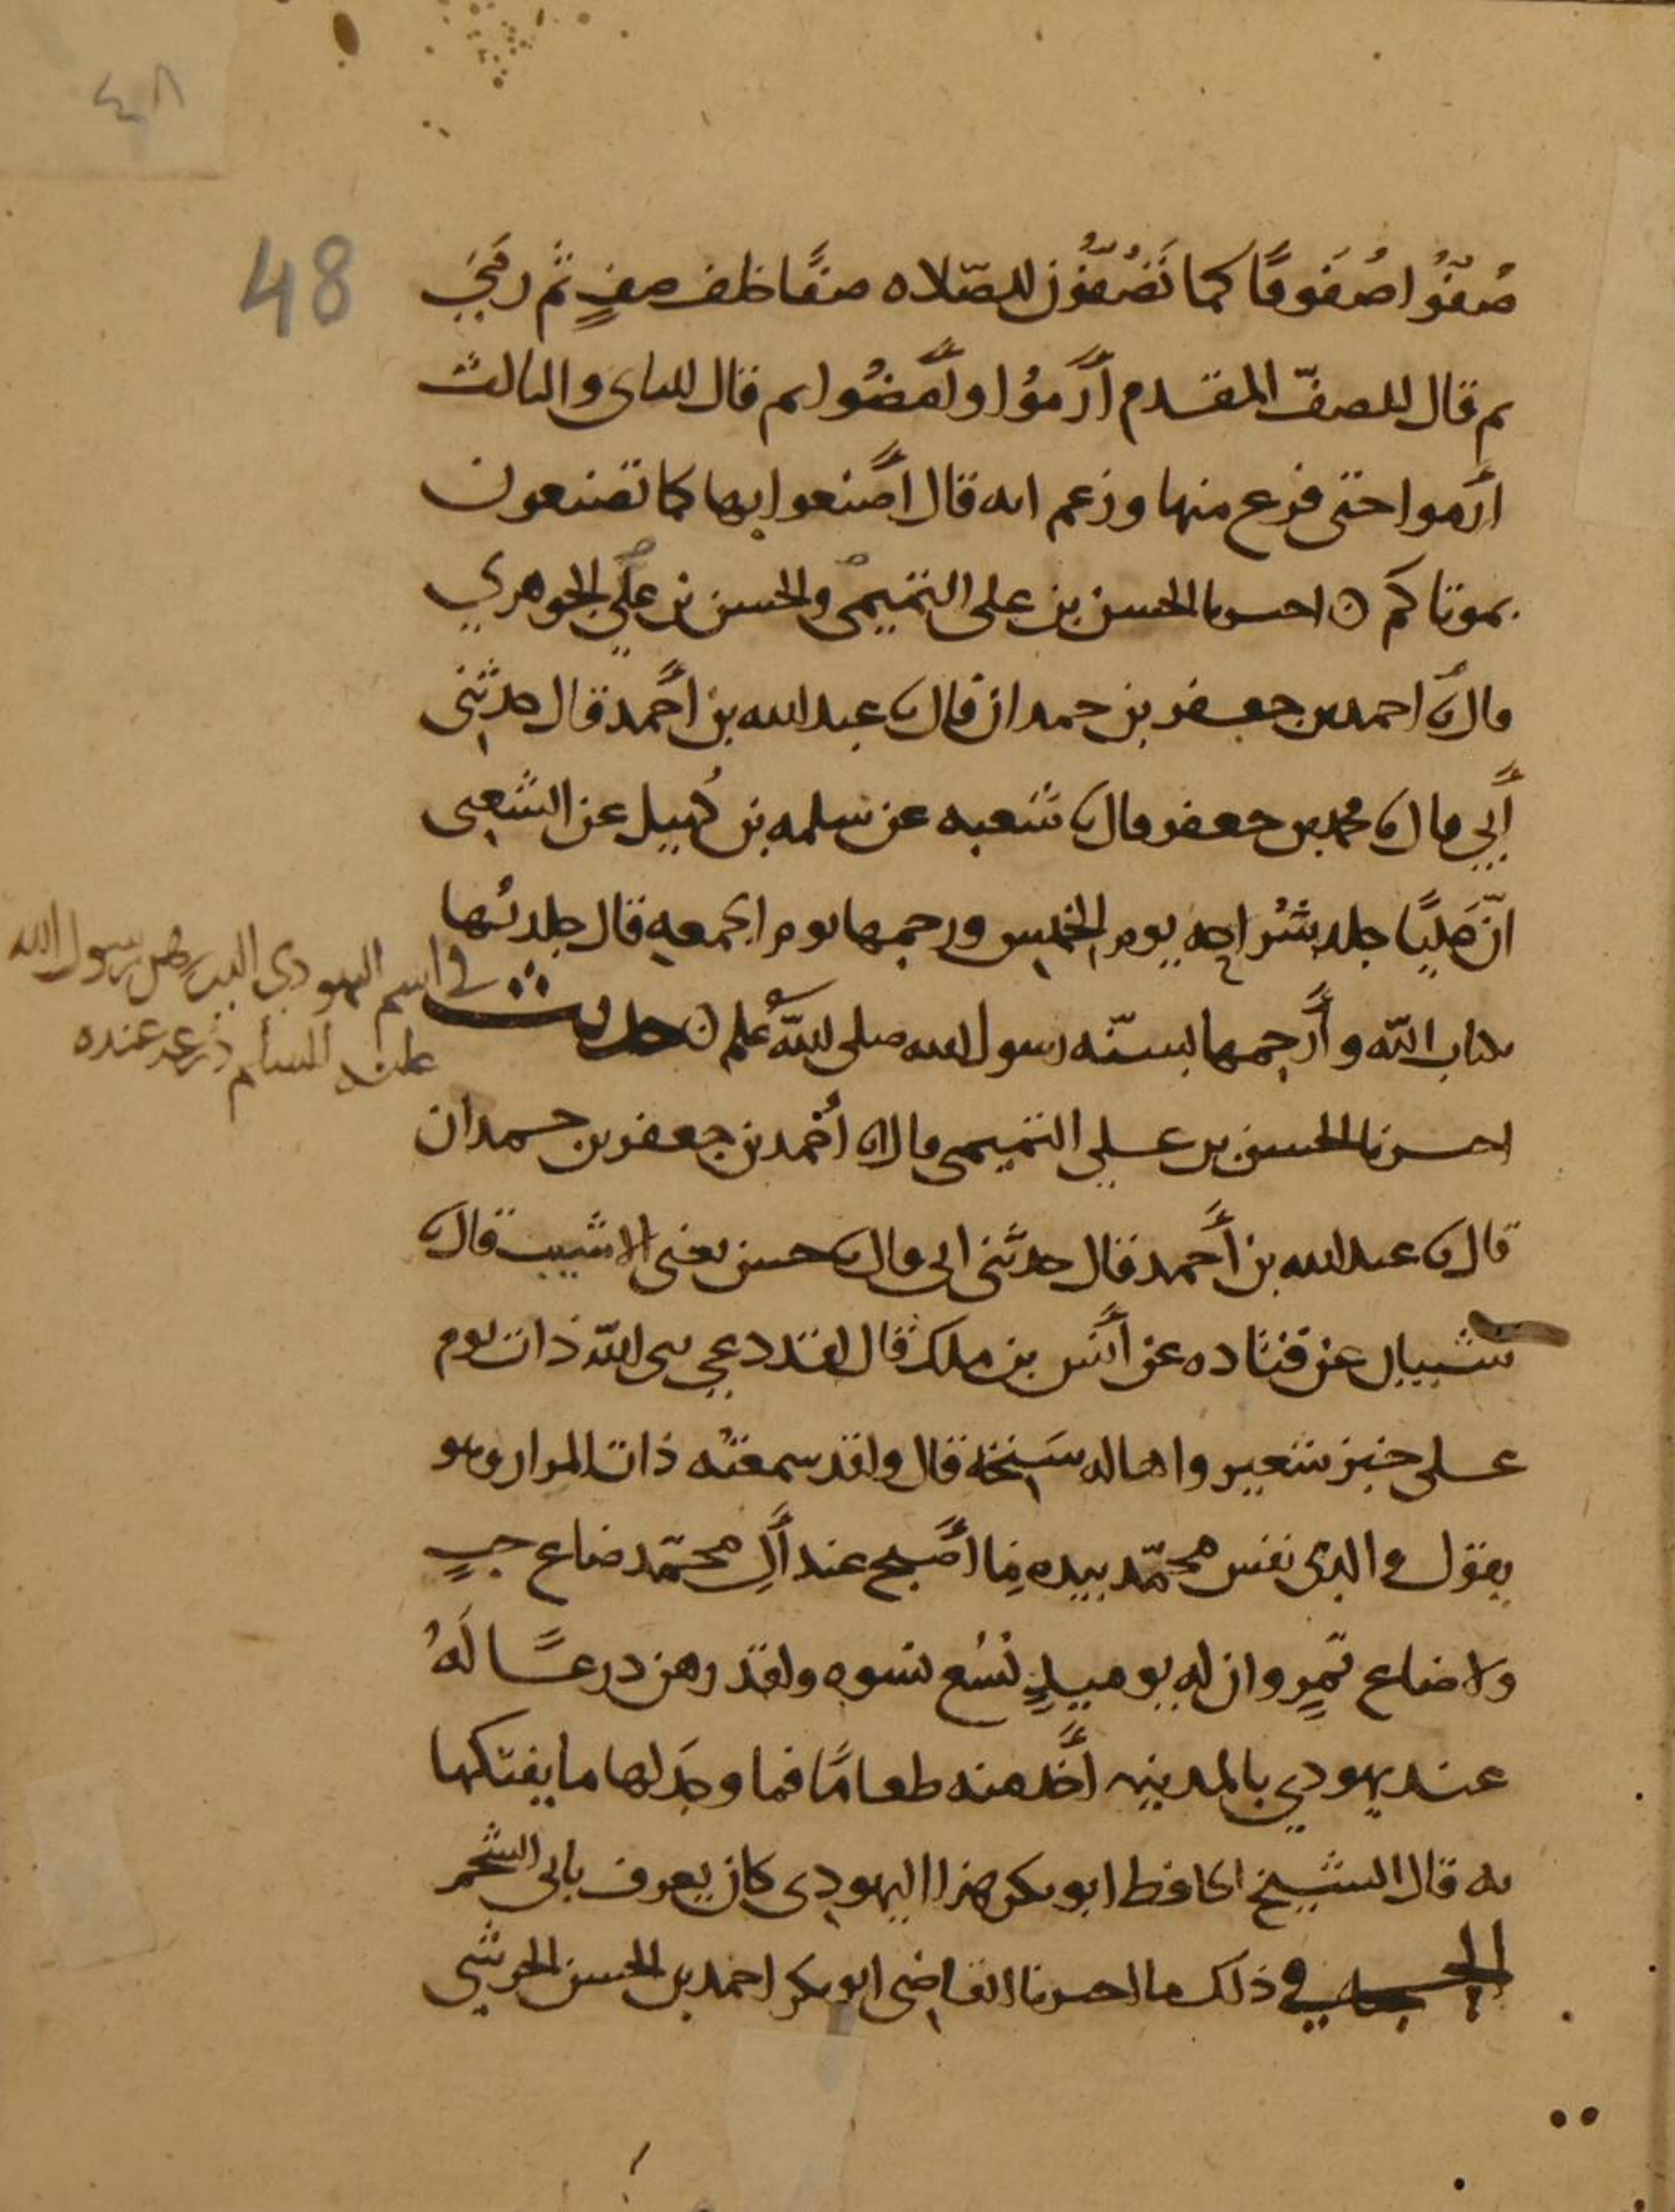 ٤٨
48
صُفُّوا صُفُوفًا كما تَصُفُّون للصّلاه صفًّا خلف صفٍ ثم رمي
ثم قال للصفّ المقدم أرموا وأمضُوا ثم قال للثانى والثالث
أرموا حتى فرع منها وزعم انه قال أصنعوا بها كما تصنعون
بموتاكم ٥ اخبرنا الحسن بن على التميمى والحسن بن علي الجوهري
قالا نا احمد بن جعفر بن حمدان قال نا عبد الله بن أحمد قال حدثنى
أبي قال نا محمد بن جعفر قال نا شعبه عن سلمه بن كُهيل عن الشعبى
انّ عَليًّا جلد شُراحه يوم الخميس ورجمها يوم الجمعه قال جلدتُها
بكتاب الله وأرجمها بسنّه رسول الله صلى الله عليه وسلم ٥ حديث
في اسم اليهودي الذي رهن رسول الله
عليه السلام درعه عنده
اخبرنا الحسن بن على التميمى قال انا أحمد بن جعفر بن حمدان
قال نا عبد الله بن أحمد قال حدثنى ابى قال نا حسن يعنى الاشيب قال نا
شيبان عن قتاده عن أنس بن ملك قال لقد دعي نبى الله ذات يوم
على خبز شعير واهاله سَنِخة قال ولقد سمعتُه ذات المرار وهو
يقول والذى نفس محمّد بيده ما أصبح عند أل محمّد صاع حبٍ
ولا صاع تمرٍ وان له يوميذٍ تسُع نسوه ولقد رهن درعًا لَهُ
عند يهودي بالمدينه أخذ منه طعامًا فما وجد لها ما يفتكها
به قال الشيخ الحافظ ابو بكر هذا اليهودى كان يعرف بابى الشحم
في ذلك ما اخبرنا القاضى ابو بكر احمد بن الحسن الحرشي